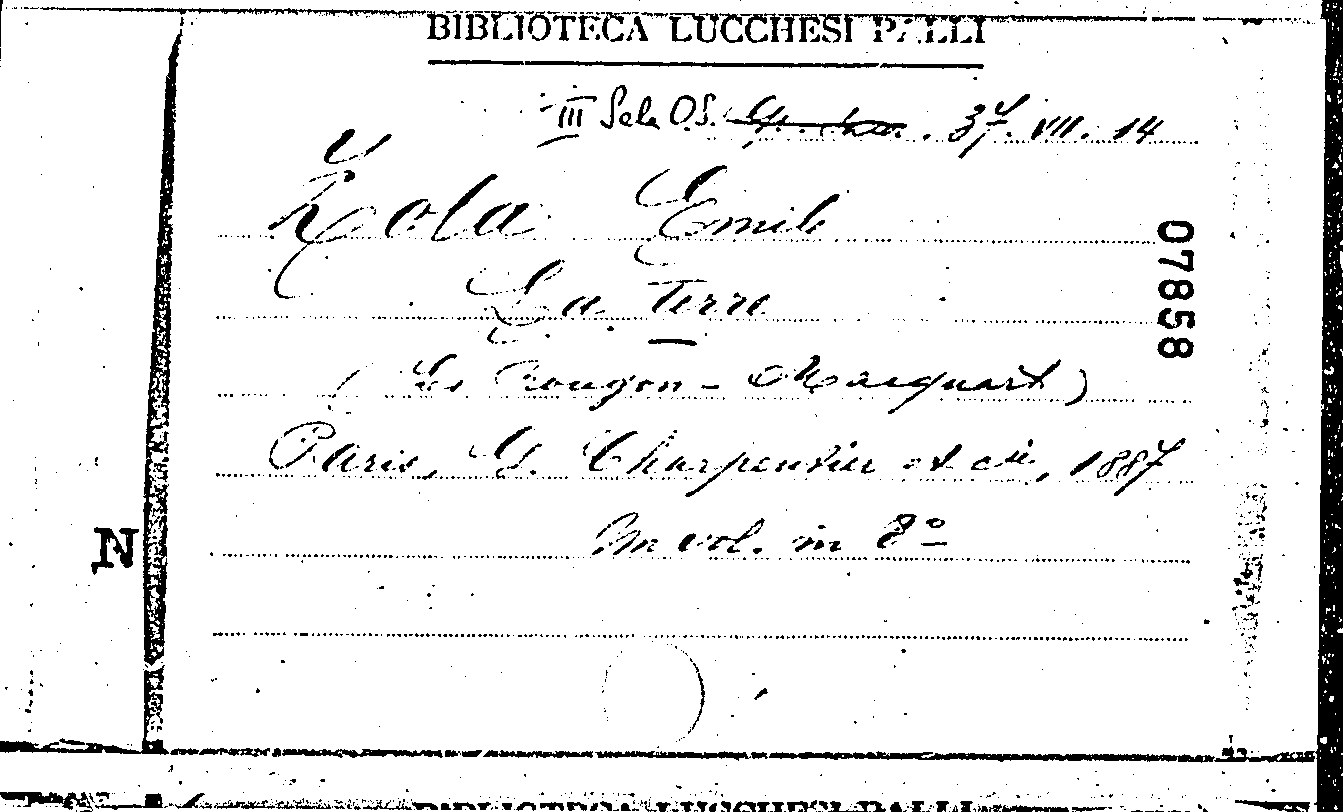 BIBLIOTECA LUCCHESI PALLI
III Sala O.S. 37. VII. 14
Zola Emile
La Terre
(Les Rougon-Macquart)
Paris, G. Charpentier et cie, 1887
Un vol. in 8º
07858
N
BIBLIOTECA LUCCHESI PALLI